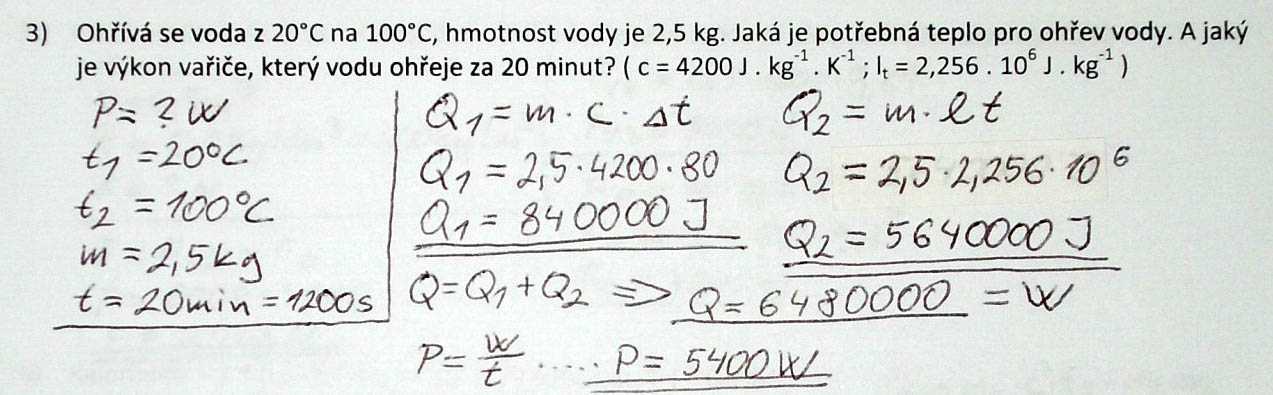 3) Ohřívá se voda z 20°C na 100°C, hmotnost vody je 2,5 kg. Jaká je potřebná teplo pro ohřev vody. A jaký
je výkon vařiče, který vodu ohřeje za 20 minut? ( c = 4200 J . kg⁻¹ . K⁻¹ ; lₜ = 2,256 . 10⁶ J . kg⁻¹ )
P = ? W
t₁ = 20°C
t₂ = 100°C
m = 2,5 kg
t = 20min = 1200s
Q₁ = m · c · Δt
Q₁ = 2,5 · 4200 · 80
Q₁ = 840000 J
Q₂ = m · lt
Q₂ = 2,5 · 2,256 · 10⁶
Q₂ = 5640000 J
Q = Q₁ + Q₂ => Q = 6480000 = W
P = W/t ..... P = 5400 W